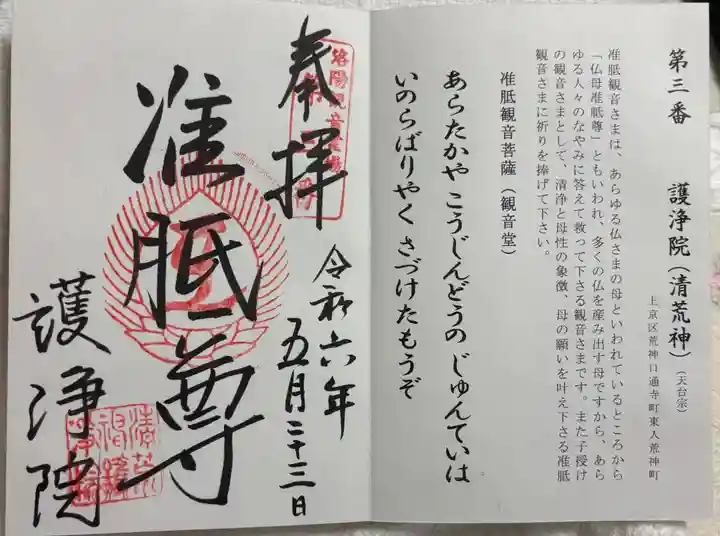 第三番　護浄院（清荒神）（天台宗）
上京区荒神口通寺町東入荒神町
准胝観音さまは、あらゆる仏さまの母といわれているところから
「仏母准胝尊」ともいわれ、多くの仏を産み出す母ですから、あら
ゆる人々のなやみに答えて救って下さる観音さまです。また子授け
の観音さまとして、清浄と母性の象徴、母の願いを叶え下さる准胝
観音さまに祈りを捧げて下さい。
准胝観音菩薩（観音堂）
あらたかや こうじんどうの じゅんていは
いのらばりやく さづけたもうぞ
奉拝
洛陽観音霊場
令和六年
五月二十三日
准胝尊
護浄院